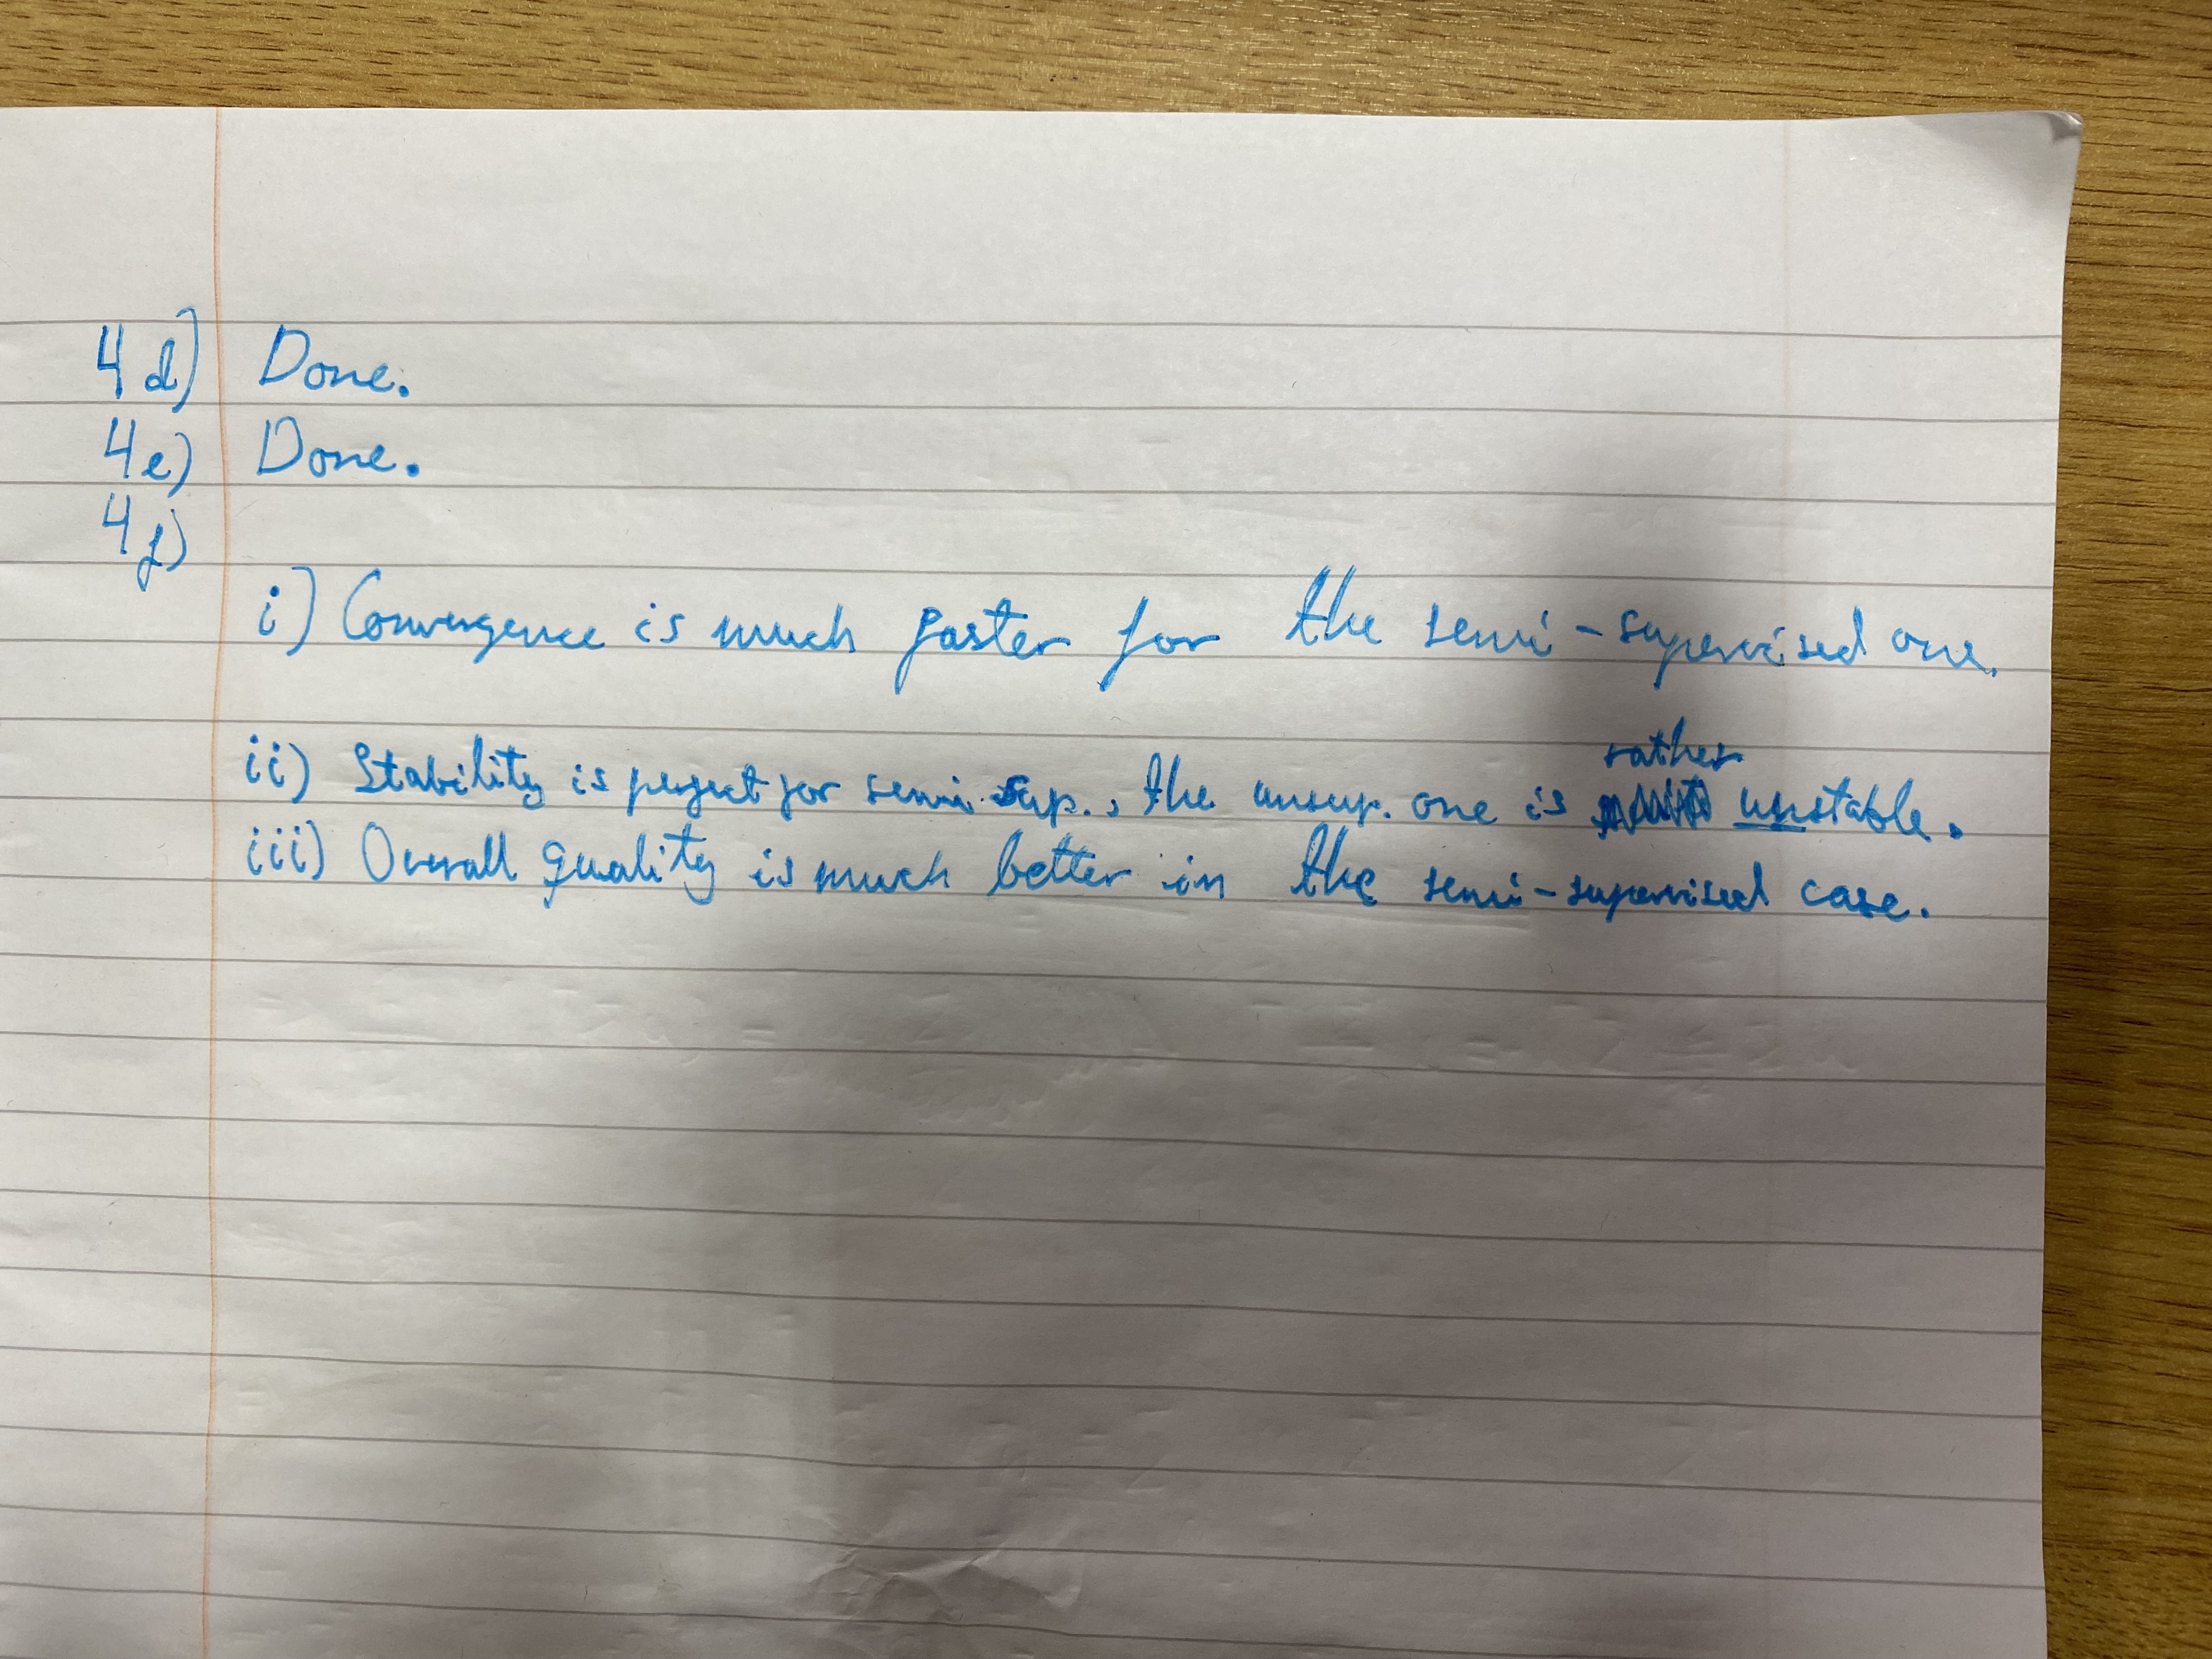 4d) Done.
4e) Done.
4f)
i) Convergence is much faster for the semi-supervised one.
rather
ii) Stability is perfect for semi sup., the unsup. one is unstable.
iii) Overall quality is much better in the semi-supervised case.